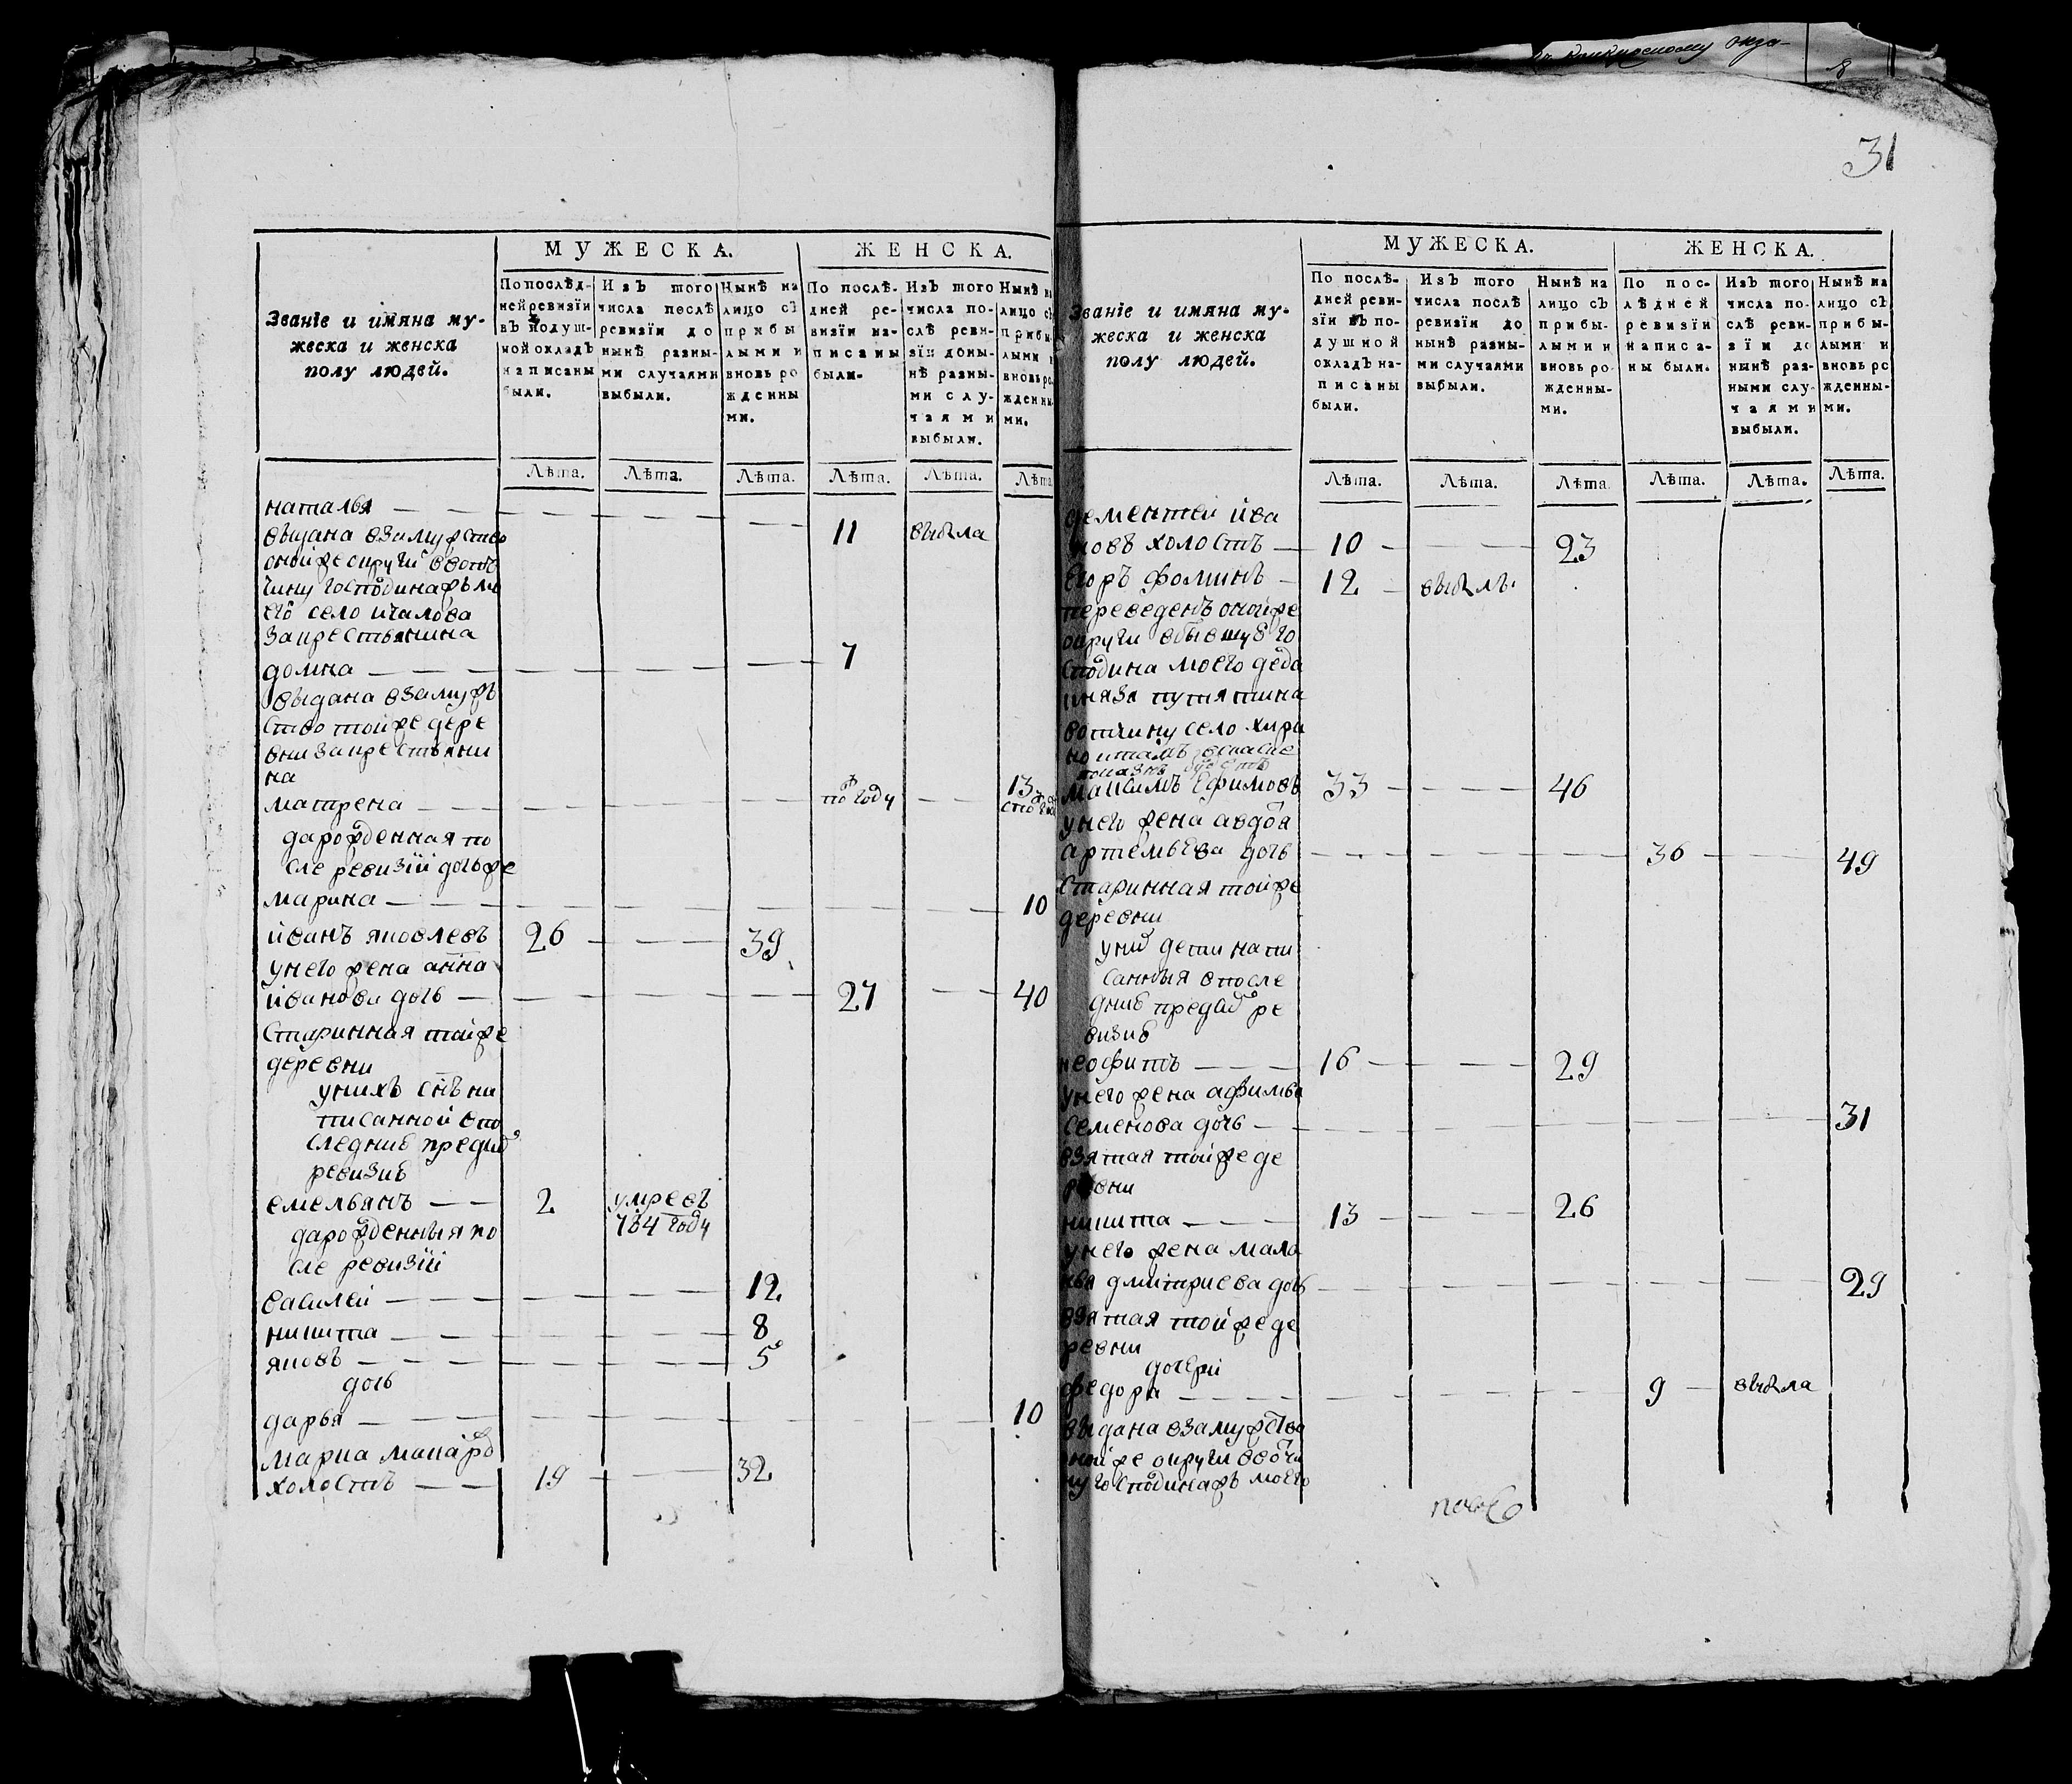 31
МУЖЕСКА. ЖЕНСКА.
Званіе и имяна му-
жеска и женска
полу людей.
По послѣд-
ней ревизіи
въ подуш-
ной окладъ
написаны
были.
Изъ того
числа послѣ
ревизіи до
нынѣ разны-
ми случаями
выбыли.
Нынѣ на
лицо съ
прибы
лыми и
вновь ро
жденны
ми.
По послѣ-
дней ре-
визіи на-
писаны
были.
Изъ того
числа по-
слѣ реви-
зіи доны-
нѣ разны-
ми слу-
чаями
выбыли.
Нынѣ на
лицо съ
прибы
лыми
вновь ро
жденны
ми.
Лѣта. Лѣта. Лѣта. Лѣта. Лѣта. Лѣта
наталья
выдана взамужство 11 выбла
оной же округи ввотъ
чину господина жъ мо
его село
закрестьянина
домна 7
выдана взамужъ
ство той же дере
вни закрестьяни
на
матрена по году 13
дарожденная по
сле ревизiи дочь же
марина 10
иванъ яковлевъ 26 39
унего жена анна
иванова дочь 27 40
Старинная той же
деревни
унихъ снъ на
писанной впо
следнѣ предъид
ревизиѣ
емельянъ 2 умре въ
784 году
дарожденныя по
сле ревизiи
василей 12
никита 8
яковъ 5
дочь
дарья 10
марка макаро
холостъ 19 32
МУЖЕСКА. ЖЕНСКА.
Званіе и имяна му-
жеска и женска
полу людей.
По послѣ-
дней реви-
зіи въ по-
душной
окладъ на-
писаны
были.
Изъ того
числа послѣ
ревизіи до
нынѣ разны-
ми случаями
выбыли.
Нынѣ на
лицо съ
прибы-
лыми и
вновь ро-
жденны-
ми.
По пос-
лѣдней
ревизіи
написа-
ны были.
Изъ того
числа по-
слѣ реви-
зіи до
нынѣ раз-
ными слу-
чаями
выбыли.
Нынѣ на
лицо съ
прибы-
лыми и
вновь ро
жденны-
ми.
Лѣта. Лѣта. Лѣта Лѣта. Лѣта. Лѣта.
дементей ива
новъ холостъ 10 23
Егоръ фоминъ 12 выблъ
переведенъ оной же
округи го
сподина моего деда
князя путятина
вотчину село
максимъ Ефимовъ 33 46
унего жена авдоя
артемьева дочь 36 49
Старинная той же
деревни
дети напи
санныя впосле
днѣ предъид ре
визиѣ
неофитъ 16 29
унего жена афимья
Семенова дочь 31
взятая той же де
ревни
никита 13 26
унего жена мала
нья дмитриева дочь 29
взятая той же де
ревни
дочери
федора 9 выбла
выдана взамужство
оной же округи ввотчи
ну господина жъ моего